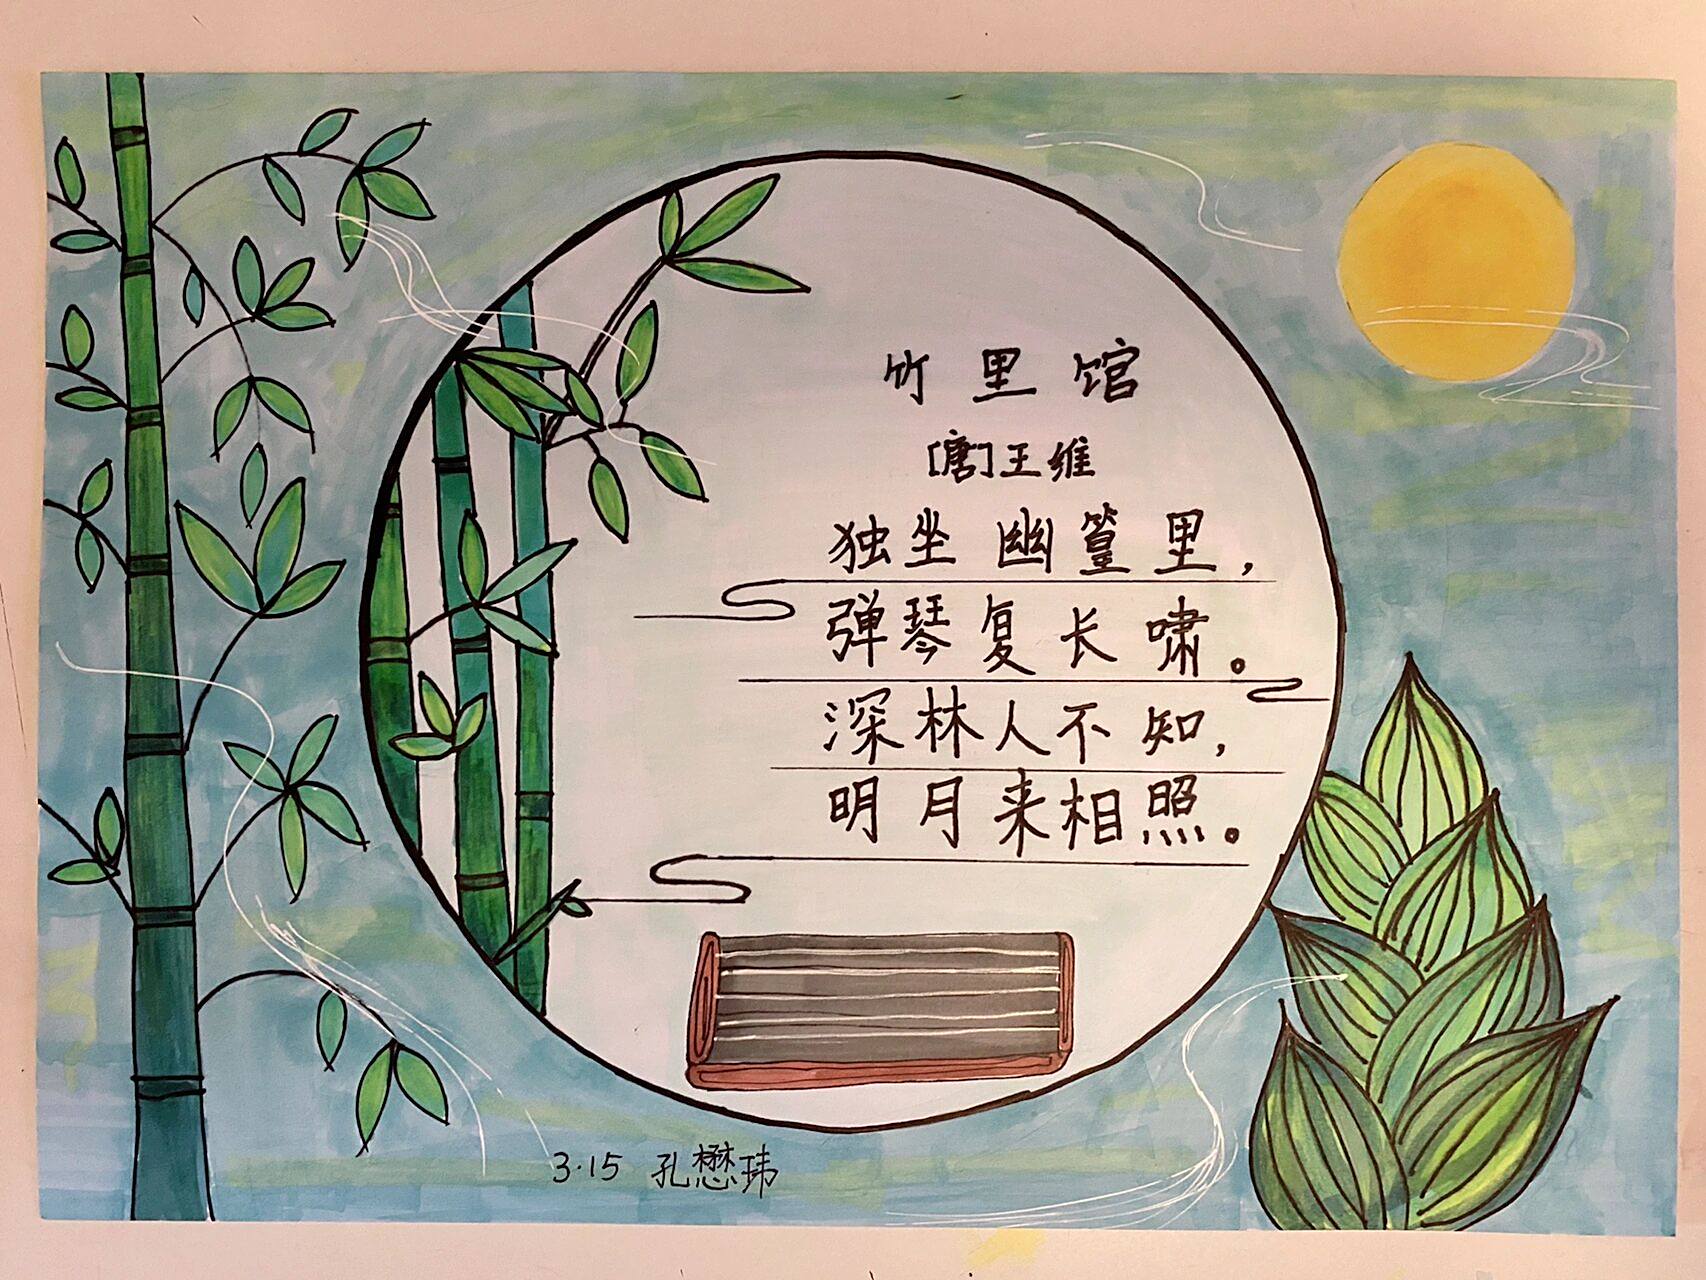 竹里馆
[唐]王维
独坐幽篁里，
弹琴复长啸。
深林人不知，
明月来相照。
3.15 孔懋玮